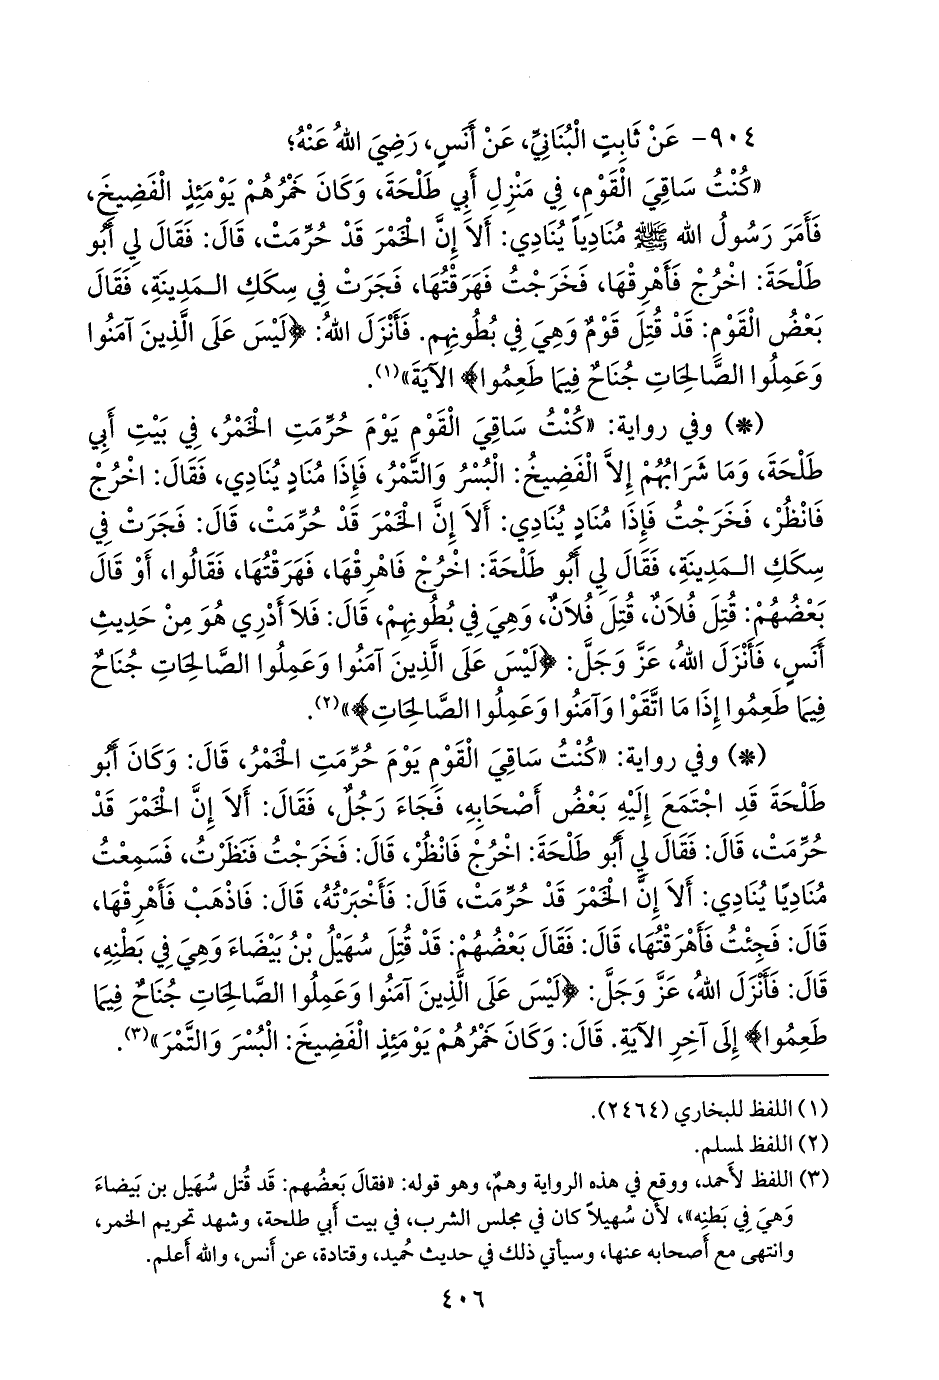 ٩٠٤- عَنْ ثَابِتٍ الْبُنَانِيِّ، عَنْ أَنَسٍ، رَضِيَ اللهُ عَنْهُ؛
«كُنْتُ سَاقِيَ الْقَوْمِ، فِي مَنْزِلِ أَبِي طَلْحَةَ، وَكَانَ خَمْرُهُمْ يَوْمَئِذٍ الْفَضِيخَ،
فَأَمَرَ رَسُولُ اللهِ ﷺ مُنَادِياً يُنَادِي: أَلاَ إِنَّ الْخَمْرَ قَدْ حُرِّمَتْ، قَالَ: فَقَالَ لِي أَبُو
طَلْحَةَ: اخْرُجْ فَأَهْرِقْهَا، فَخَرَجْتُ فَهَرَقْتُهَا، فَجَرَتْ فِي سِكَكِ الـمَدِينَةِ، فَقَالَ
بَعْضُ الْقَوْمِ: قَدْ قُتِلَ قَوْمٌ وَهِيَ فِي بُطُونِهِمِ. فَأَنْزَلَ اللهُ: ﴿لَيْسَ عَلَى الَّذِينَ آمَنُوا
وَعَمِلُوا الصَّالِحَاتِ جُنَاحٌ فِيمَا طَعِمُوا﴾ الآيَةَ»(١).
(*) وفي رواية: «كُنْتُ سَاقِيَ الْقَوْمِ يَوْمَ حُرِّمَتِ الخَمْرُ، فِي بَيْتِ أَبِي
طَلْحَةَ، وَمَا شَرَابُهُمْ إِلاَّ الْفَضِيخُ: الْبُسْرُ وَالتَّمْرُ، فَإِذَا مُنَادٍ يُنَادِي، فَقَالَ: اخْرُجْ
فَانْظُرْ، فَخَرَجْتُ فَإِذَا مُنَادٍ يُنَادِي: أَلاَ إِنَّ الْخَمْرَ قَدْ حُرِّمَتْ، قَالَ: فَجَرَتْ فِي
سِكَكِ الـمَدِينَةِ، فَقَالَ لِي أَبُو طَلْحَةَ: اخْرُجْ فَاهْرِقْهَا، فَهَرَقْتُهَا، فَقَالُوا، أَوْ قَالَ
بَعْضُهُمْ: قُتِلَ فُلاَنٌ، قُتِلَ فُلاَنٌ، وَهِيَ فِي بُطُونِهِمْ، قَالَ: فَلاَ أَدْرِي هُوَ مِنْ حَدِيثِ
أَنَسٍ، فَأَنْزَلَ اللهُ، عَزَّ وَجَلَّ: ﴿لَيْسَ عَلَى الَّذِينَ آمَنُوا وَعَمِلُوا الصَّالِحَاتِ جُنَاحٌ
فِيمَا طَعِمُوا إِذَا مَا اتَّقَوْا وَآمَنُوا وَعَمِلُوا الصَّالِحَاتِ﴾»(٢).
(*) وفي رواية: «كُنْتُ سَاقِيَ الْقَوْمِ يَوْمَ حُرِّمَتِ الخَمْرُ، قَالَ: وَكَانَ أَبُو
طَلْحَةَ قَدِ اجْتَمَعَ إِلَيْهِ بَعْضُ أَصْحَابِهِ، فَجَاءَ رَجُلٌ، فَقَالَ: أَلاَ إِنَّ الْخَمْرَ قَدْ
حُرِّمَتْ، قَالَ: فَقَالَ لِي أَبُو طَلْحَةَ: اخْرُجْ فَانْظُرْ، قَالَ: فَخَرَجْتُ فَنَظَرْتُ، فَسَمِعْتُ
مُنَادِيًا يُنَادِي: أَلاَ إِنَّ الْخَمْرَ قَدْ حُرِّمَتْ، قَالَ: فَأَخْبَرْتُهُ، قَالَ: فَاذْهَبْ فَأَهْرِقْهَا،
قَالَ: فَجِئْتُ فَأَهْرَقْتُهَا، قَالَ: فَقَالَ بَعْضُهُمْ: قَدْ قُتِلَ سُهَيْلُ بْنُ بَيْضَاءَ وَهِيَ فِي بَطْنِهِ،
قَالَ: فَأَنْزَلَ اللهُ، عَزَّ وَجَلَّ: ﴿لَيْسَ عَلَى الَّذِينَ آمَنُوا وَعَمِلُوا الصَّالِحَاتِ جُنَاحٌ فِيمَا
طَعِمُوا﴾ إِلَى آخِرِ الآيَةِ. قَالَ: وَكَانَ خَمْرُهُمْ يَوْمَئِذٍ الْفَضِيخَ: الْبُسْرَ وَالتَّمْرَ»(٣).
(١) اللفظ للبخاري (٢٤٦٤).
(٢) اللفظ لمسلم.
(٣) اللفظ لأحمد، ووقع في هذه الرواية وهمٌ، وهو قوله: «فقالَ بَعضُهم: قَد قُتل سُهَيل بن بَيضاءَ
وَهيَ فِي بَطنِه»، لأن سُهيلاً كان في مجلس الشرب، في بيت أبي طلحة، وشهد تحريم الخمر،
وانتهى مع أصحابه عنها، وسيأتي ذلك في حديث حُميد، وقتادة، عن أنس، والله أعلم.
٤٠٦